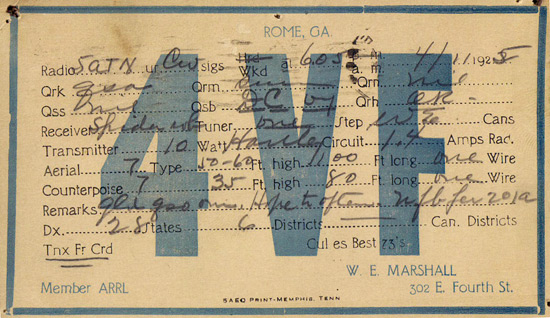 ROME, GA.
4VF
Radio 5ATN ur Cw sigs Hrd Wkd at 605 p. m. a. m. 4/11 1925
Qrk Qrm Qrn
Qss Qsb DC Qrh
Receiver Tuner one Step Cans
Transmitter 10 Watt Hartley Circuit 1.4 Amps Rad.
Aerial 7 Type 50-60 Ft. high 100 Ft long one Wire
Counterpoise 7 35 Ft. high 80 Ft long one Wire
Remarks gld qso om. Hope to often. Nfb for 201a
Dx. 28 States 6 Districts Can. Districts
Tnx Fr Crd Cul es Best 73's
W. E. MARSHALL
Member ARRL 302 E. Fourth St.
SAEQ PRINT-MEMPHIS, TENN